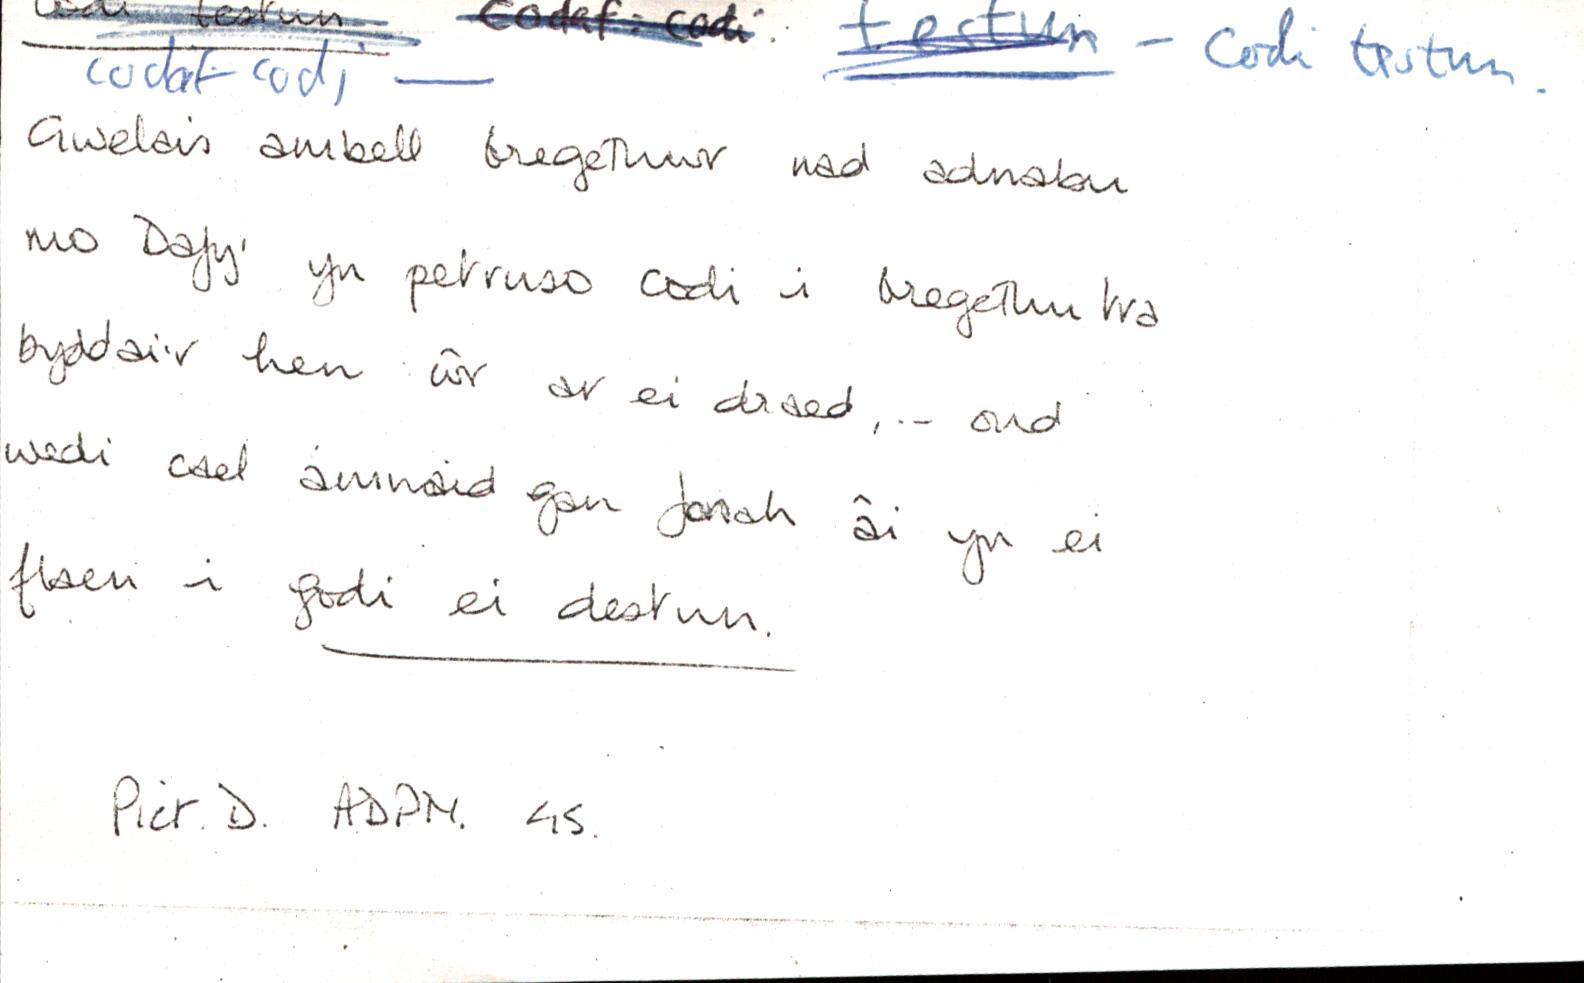 codi testun codaf: codi. testun - codi testun.
codaf-codi —
Gwelais ambell bregethwr nad adnabu
mo Dafy' yn petruso codi i bregethu tra
byddai'r hen ŵr ar ei draed, ... ond
wedi cael amnaid gan Jonah âi yn ei
flaen i godi ei destun.
Pict. D. ADPM. 45.